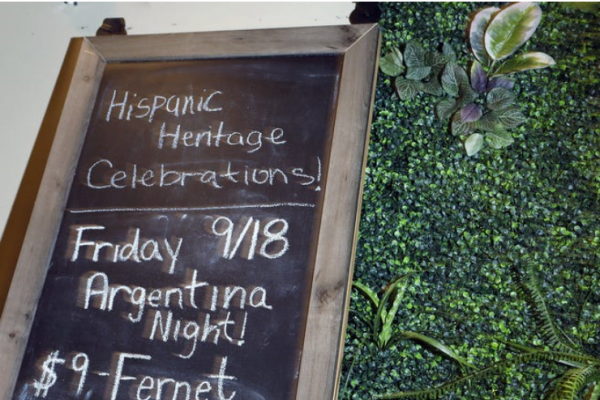 Hispanic
Heritage
Celebrations!
Friday 9/18
Argentina
Night!
$9-Fernet